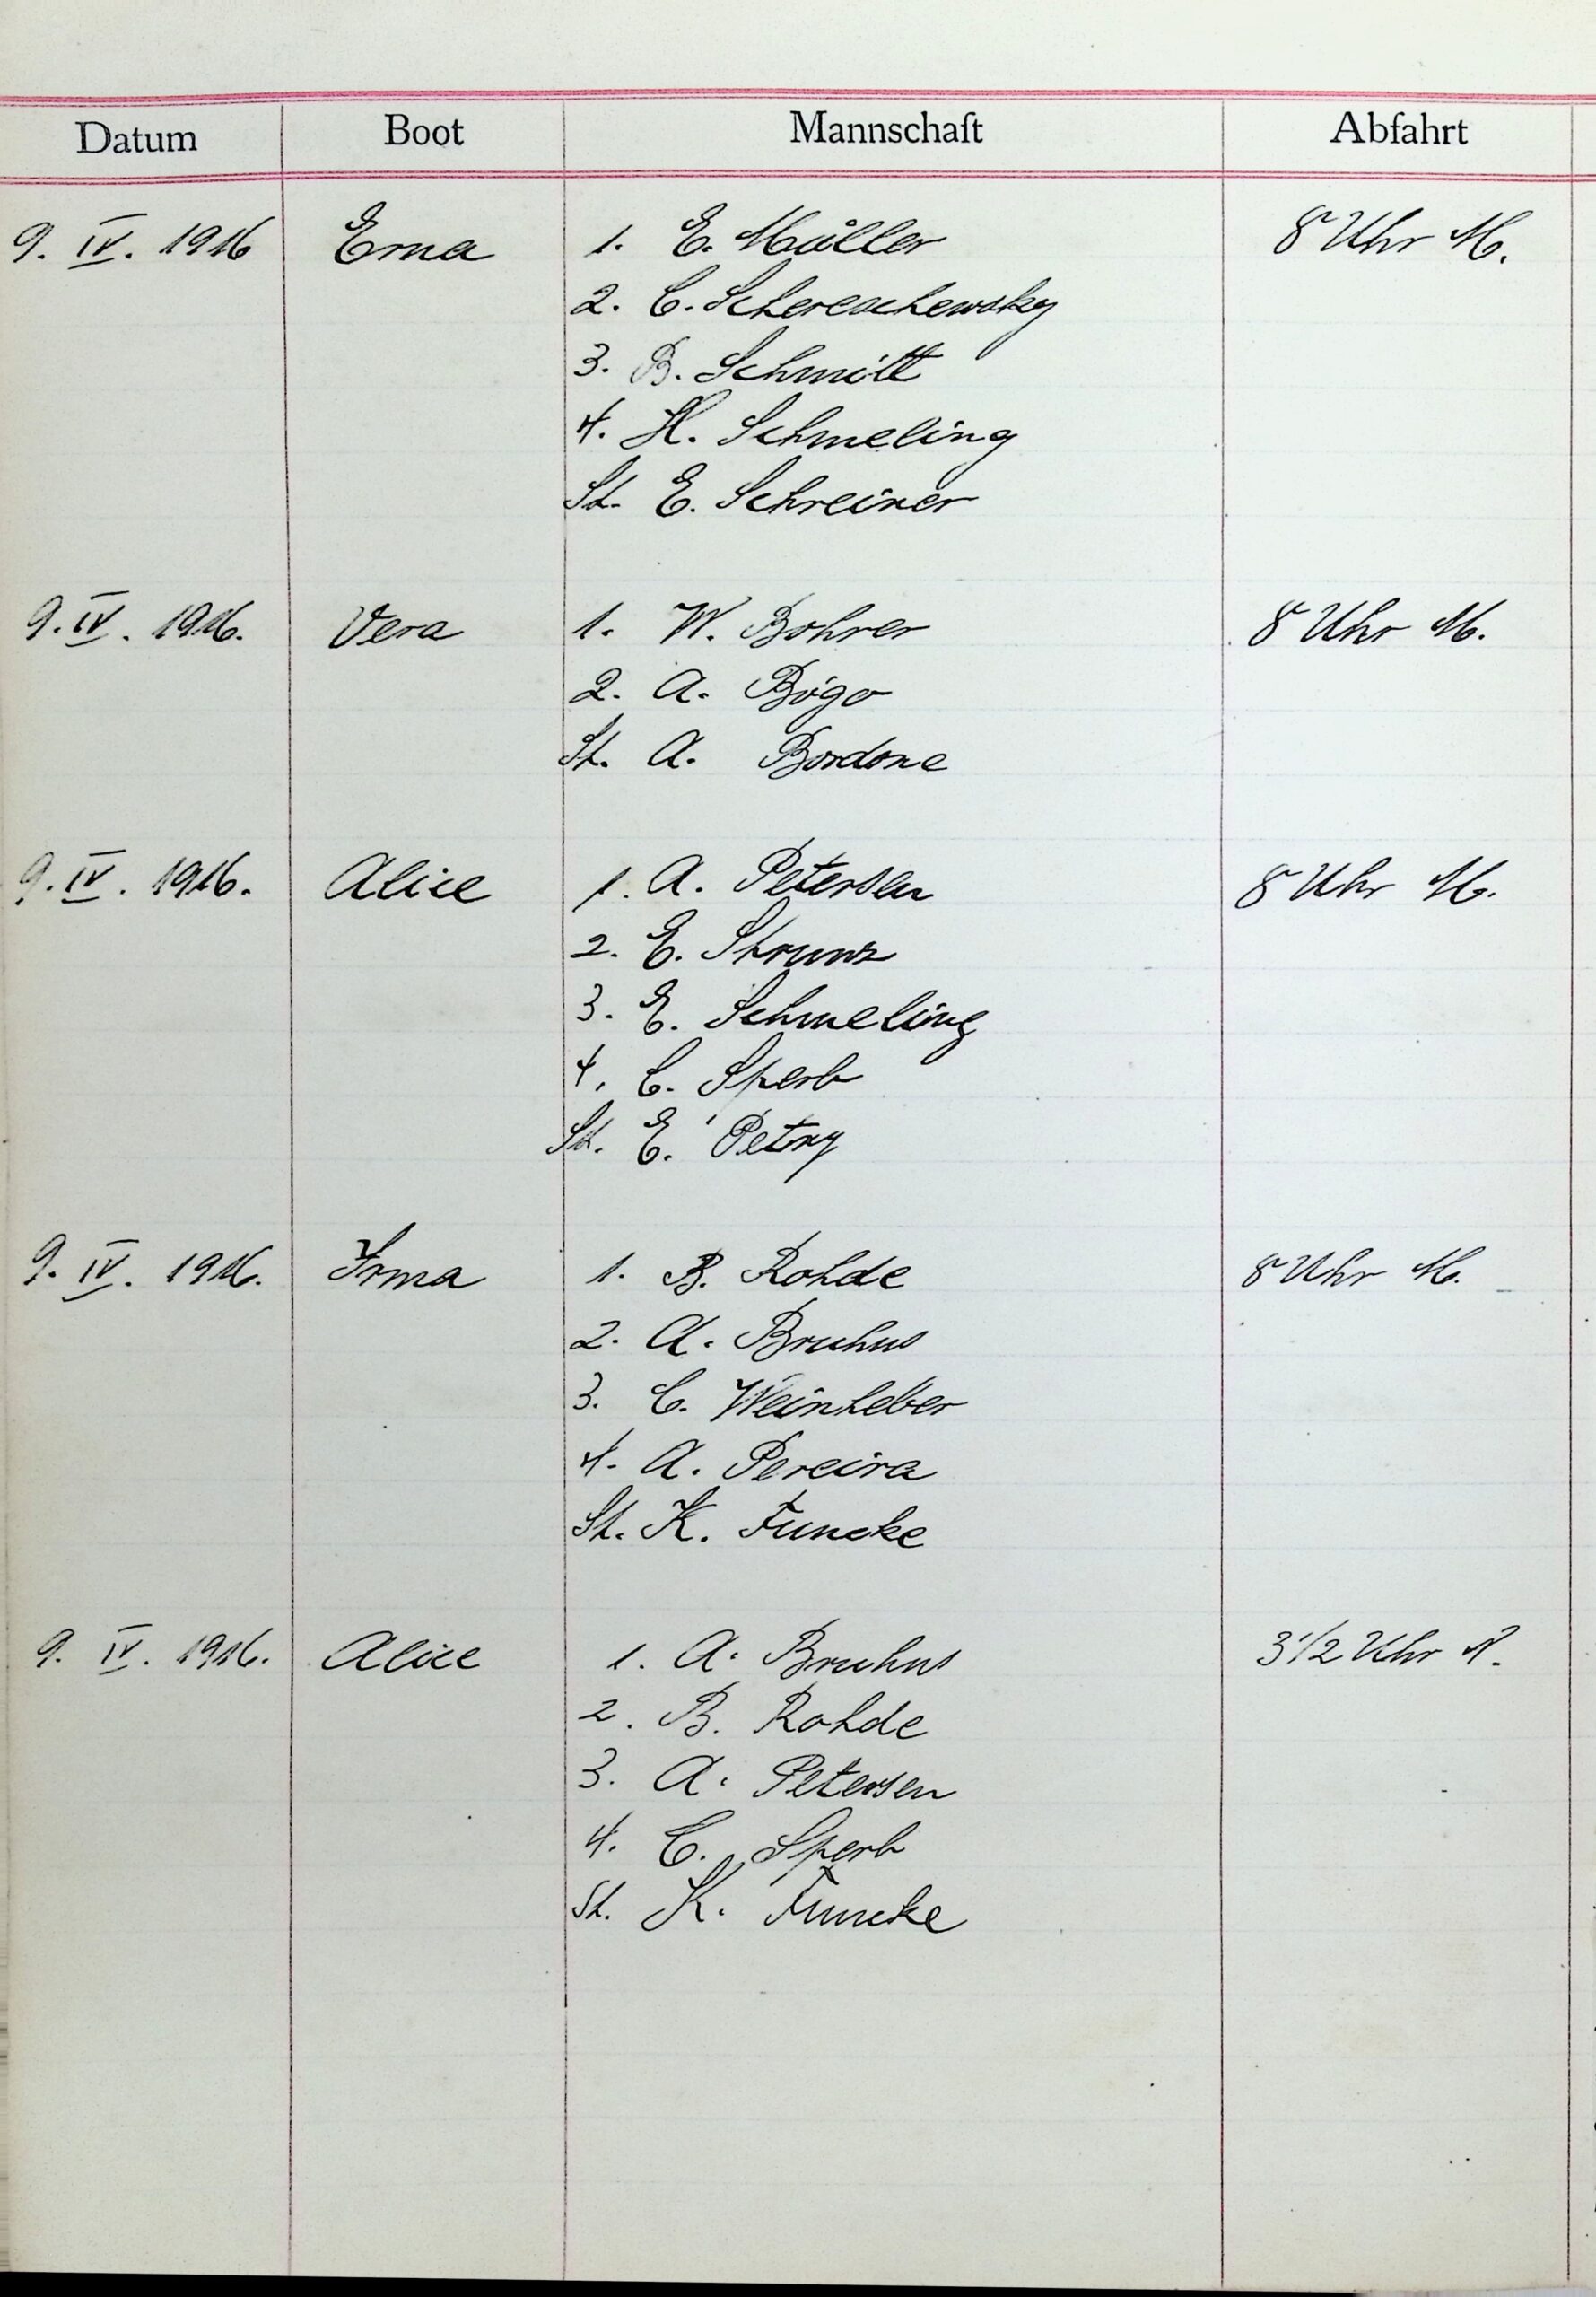 Datum Boot Mannschaft Abfahrt
9. IV. 1916 Erna 1. E. Müller 8 Uhr M.
2. C. Schereschewsky
3. B. Schmitt
4. H. Schmeling
St. E. Schreiner
9. IV. 1916. Vera 1. W. Bohrer 8 Uhr M.
2. A. Bögo
St. A. Bordone
9. IV. 1916. Alice 1. A. Petersen 8 Uhr M.
2. E. Strunz
3. E. Schmeling
4. C. Sperb
St. E. Petry
9. IV. 1916. Irma 1. B. Rohde 8 Uhr M.
2. A. Bruhns
3. C. Weinheber
4. A. Pereira
St. K. Funcke
9. IV. 1916. Alice 1. A. Bruhns 3 1/2 Uhr N.
2. B. Rohde
3. A. Petersen
4. C. Sperb
St. K. Funcke